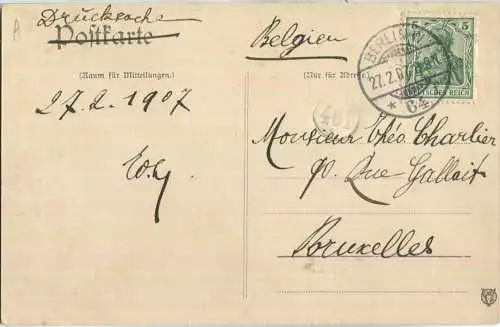 Drucksache
Postkarte
Belgien
(Raum für Mitteilungen.)
(Nur für Adresse.)
27.2.1907
5 5
DEUTSCHES REICH
BERLIN
27.2.
64
401
Monsieur Théo. Charlier
90. Rue Gallait
Bruxelles